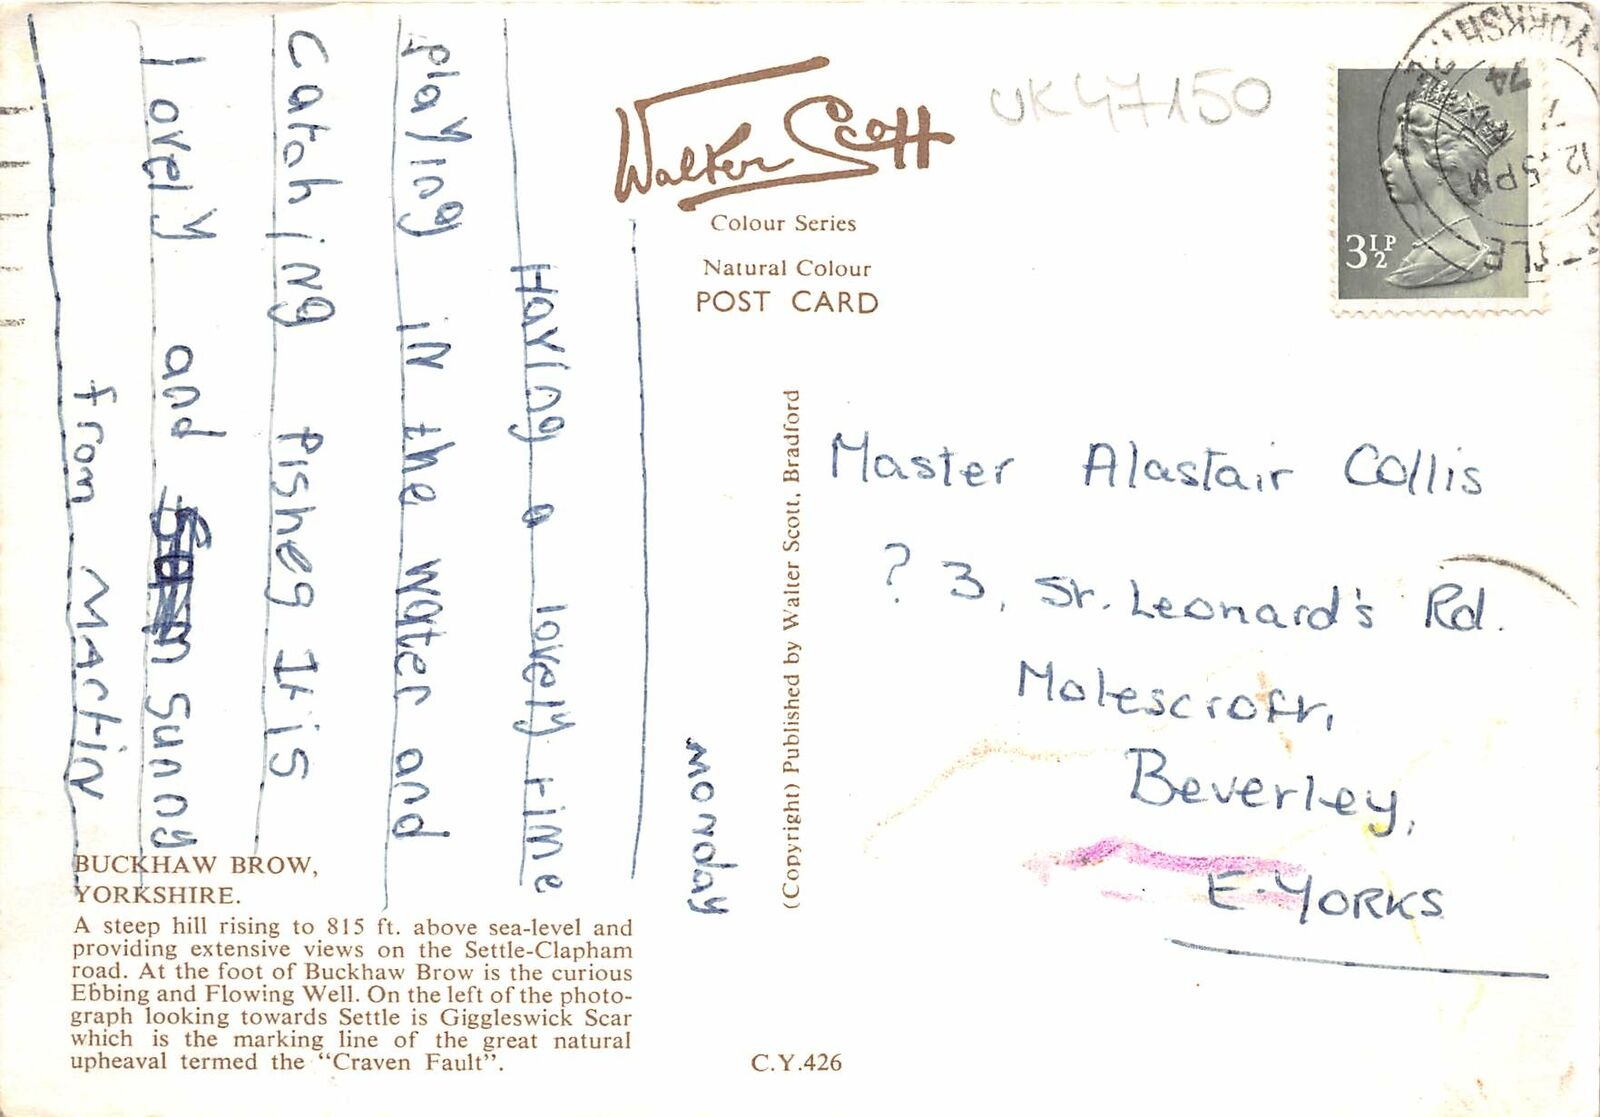 Monday
Having a lovely time
playing in the water and
Catching fishes It is
lovely and sunny
from Martin
Walter Scott
Colour Series
Natural Colour
POST CARD
UK47150
3½P
YORKSHIRE
12.15PM
74
(Copyright) Published by Walter Scott, Bradford
Master Alastair Collis
? 3, St. Leonard's Rd.
Molescroft,
Beverley,
E. YORKS
BUCKHAW BROW,
YORKSHIRE.
A steep hill rising to 815 ft. above sea-level and
providing extensive views on the Settle-Clapham
road. At the foot of Buckhaw Brow is the curious
Ebbing and Flowing Well. On the left of the photo-
graph looking towards Settle is Giggleswick Scar
which is the marking line of the great natural
upheaval termed the "Craven Fault".
C.Y.426